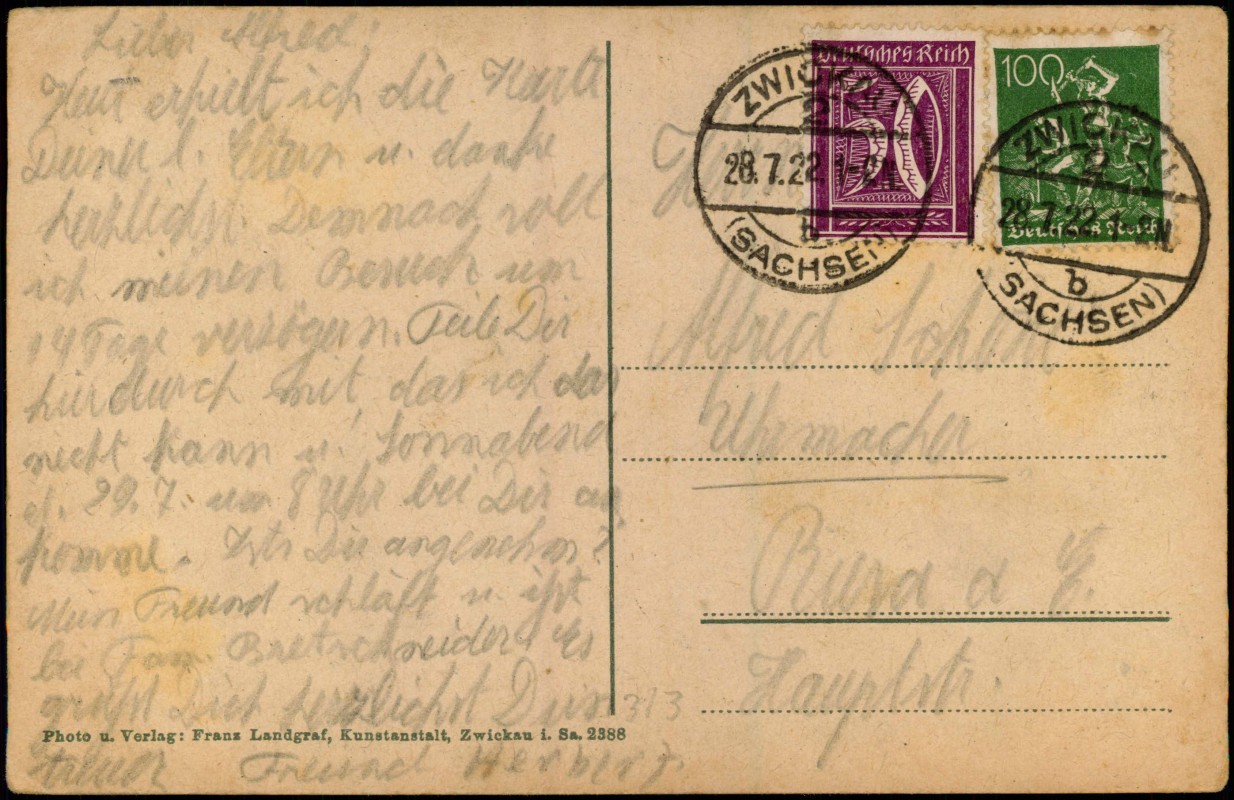 Lieber Alfred,
Heut erhielt ich die Karte
Deiner l. Eltern u. danke
herzlichst. Demnach soll
ich meinen Besuch um
14 Tage verzögern. Teile Dir
hierdurch mit das ich das
nicht kann u. Sonnabend
d. 29.7. um 8 Uhr bei Dir an
komme. Ists Dir angenehm?
Mein Freund schläft u. ißt
bei Fam. Bretschneider. Es
grüßt Dich herzlichst Dein
Freund Herbert
313
Photo u. Verlag: Franz Landgraf, Kunstanstalt, Zwickau i. Sa. 2388
Deutsches Reich
50
100
Deutsches Reich
ZWICKAU
2
28.7.22.1-2N
b
(SACHSEN)
ZWICKAU
2
28.7.22.1-2N
b
(SACHSEN)
Alfred
Uhrmacher
Hauptstr.